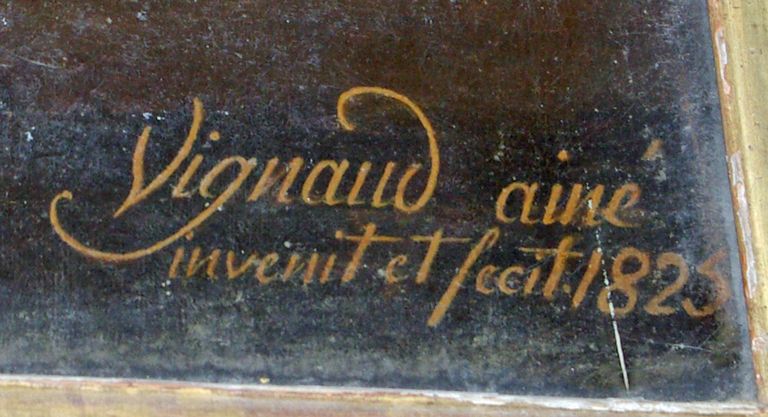 Vignaud ainé
invenit et fecit. 1825